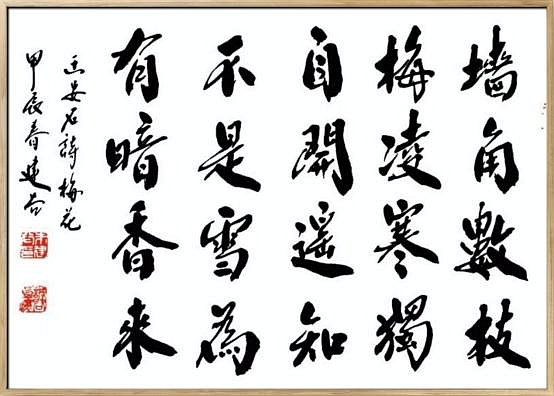 墙角數枝
梅凌寒獨
自開遥知
不是雪為
有暗香來
王安石詩梅花
甲辰春建